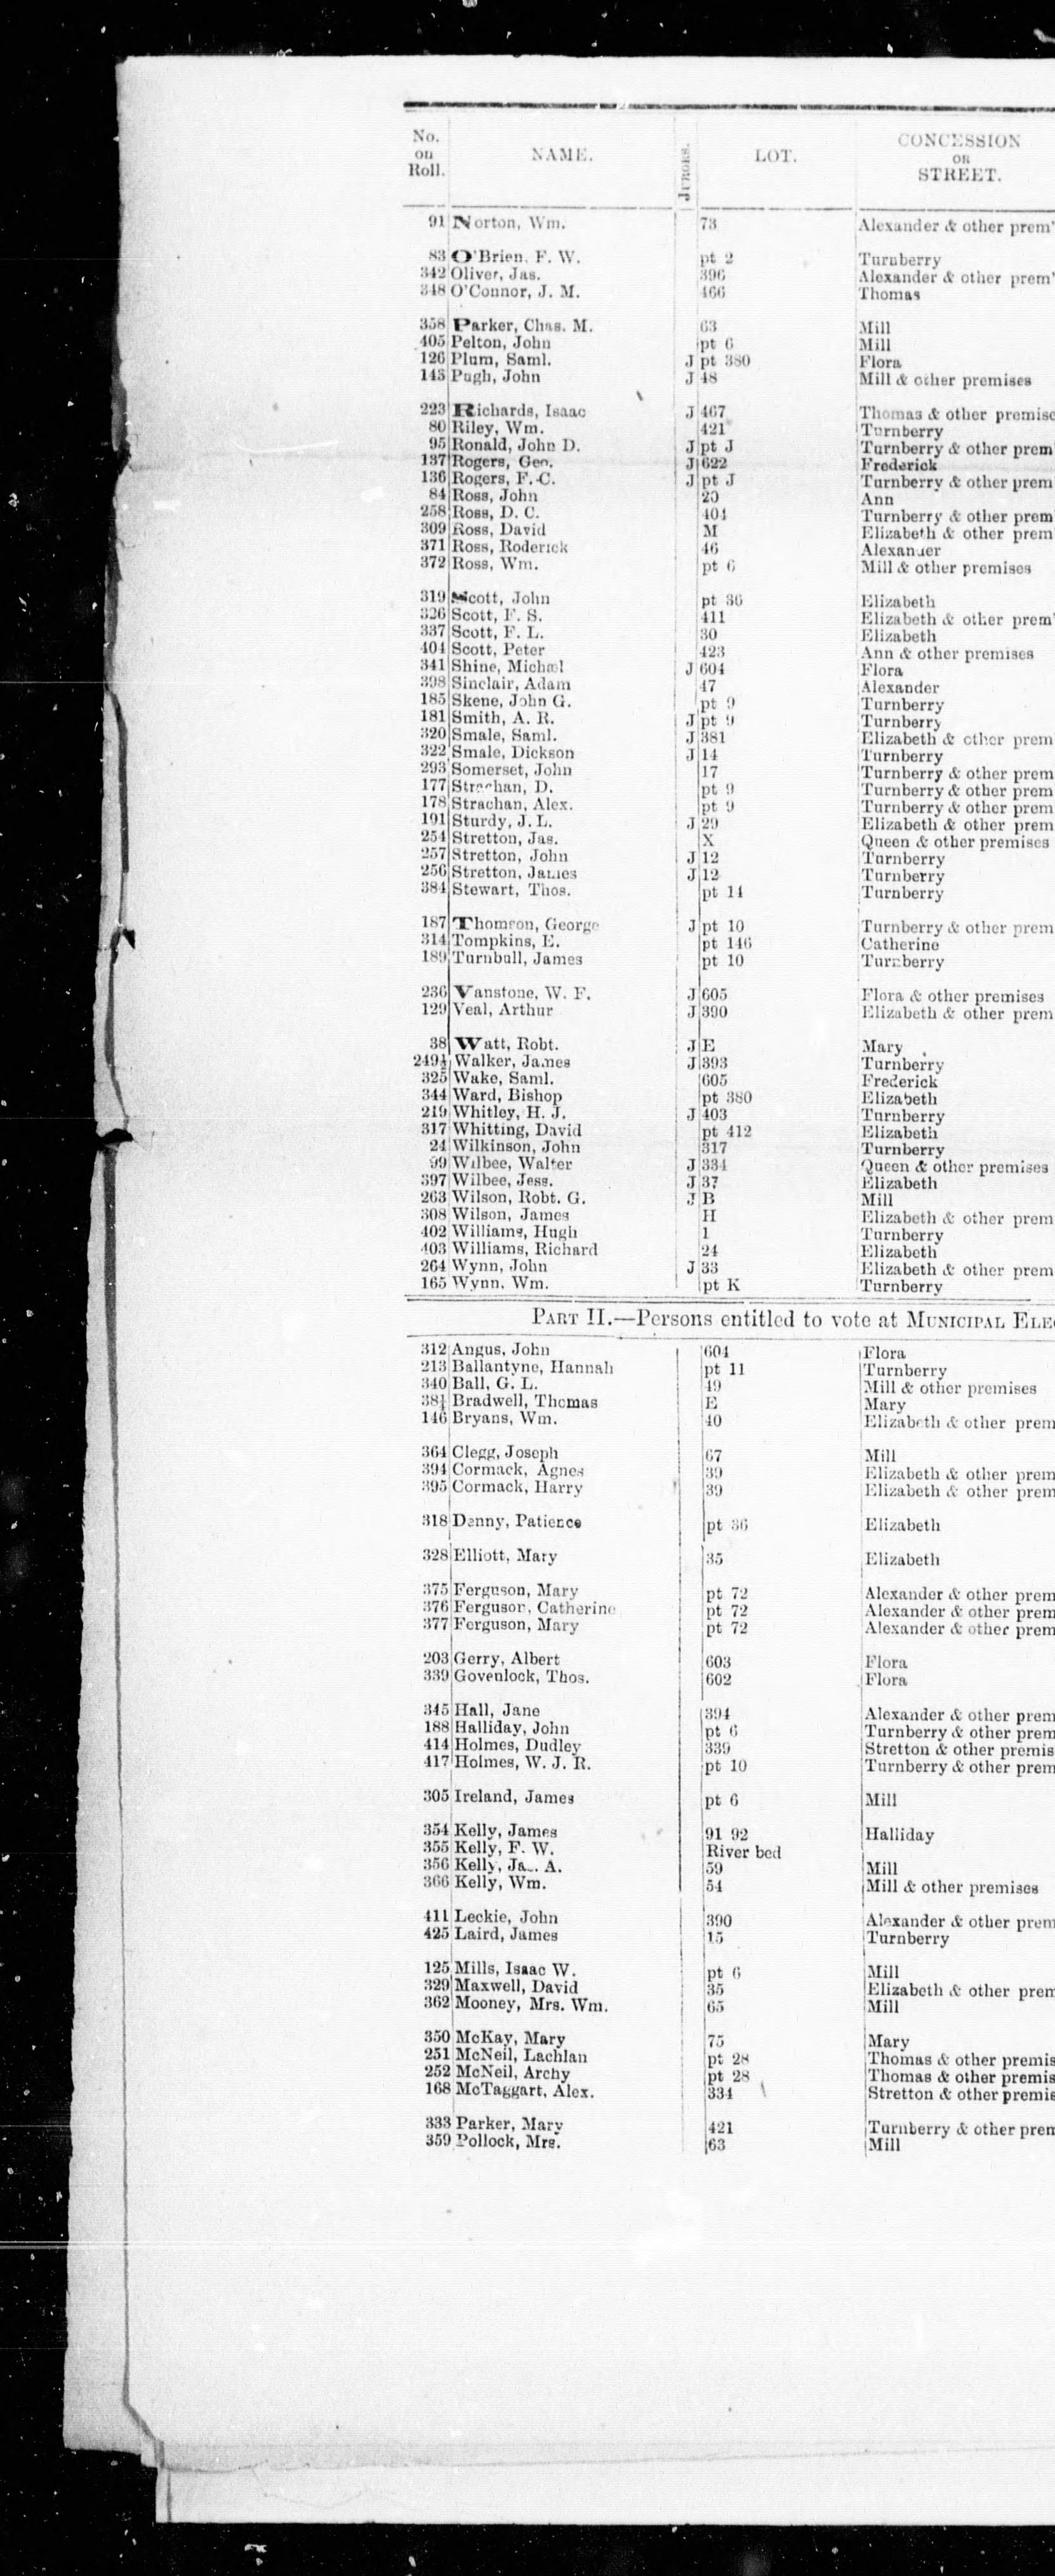 No. on Roll. NAME. JURORS. LOT. CONCESSION OR STREET.
91 Norton, Wm. 73 Alexander & other prem'
83 O'Brien, F. W. pt 2 Turnberry
342 Oliver, Jas. 396 Alexander & other prem'
348 O'Connor, J. M. 466 Thomas
358 Parker, Chas. M. 63 Mill
405 Pelton, John pt 6 Mill
126 Plum, Saml. J pt 380 Flora
143 Pugh, John J 48 Mill & other premises
223 Richards, Isaac J 467 Thomas & other premise
80 Riley, Wm. 421 Turnberry
95 Ronald, John D. J pt J Turnberry & other prem
137 Rogers, Geo. J 622 Frederick
136 Rogers, F. C. J pt J Turnberry & other prem
84 Ross, John 20 Ann
258 Ross, D. C. 404 Turnberry & other prem'
309 Ross, David M Elizabeth & other prem
371 Ross, Roderick 46 Alexander
372 Ross, Wm. pt 6 Mill & other premises
319 Scott, John pt 36 Elizabeth
326 Scott, F. S. 411 Elizabeth & other prem'
337 Scott, F. L. 30 Elizabeth
404 Scott, Peter 423 Ann & other premises
341 Shine, Michael J 604 Flora
398 Sinclair, Adam 47 Alexander
185 Skene, John G. pt 9 Turnberry
181 Smith, A. R. J pt 9 Turnberry
320 Smale, Saml. J 381 Elizabeth & other prem
322 Smale, Dickson J 14 Turnberry
293 Somerset, John 17 Turnberry & other prem
177 Strachan, D. pt 9 Turnberry & other prem
178 Strachan, Alex. pt 9 Turnberry & other prem
191 Sturdy, J. L. J 29 Elizabeth & other prem
254 Stretton, Jas. X Queen & other premises
257 Stretton, John J 12 Turnberry
256 Stretton, James J 12 Turnberry
384 Stewart, Thos. pt 14 Turnberry
187 Thomson, George J pt 10 Turnberry & other prem
314 Tompkins, E. pt 146 Catherine
189 Turnbull, James pt 10 Turnberry
236 Vanstone, W. F. J 605 Flora & other premises
129 Veal, Arthur J 390 Elizabeth & other prem
38 Watt, Robt. J E Mary
249½ Walker, James J 393 Turnberry
325 Wake, Saml. 605 Frederick
344 Ward, Bishop pt 380 Elizabeth
219 Whitley, H. J. J 403 Turnberry
317 Whitting, David pt 412 Elizabeth
24 Wilkinson, John 317 Turnberry
99 Wilbee, Walter J 334 Queen & other premises
397 Wilbee, Jess. J 37 Elizabeth
263 Wilson, Robt. G. J B Mill
308 Wilson, James H Elizabeth & other prem
402 Williams, Hugh 1 Turnberry
403 Williams, Richard 24 Elizabeth
264 Wynn, John J 33 Elizabeth & other prem
165 Wynn, Wm. pt K Turnberry
PART II.—Persons entitled to vote at MUNICIPAL ELE
312 Angus, John 604 Flora
213 Ballantyne, Hannah pt 11 Turnberry
340 Ball, G. L. 49 Mill & other premises
38½ Bradwell, Thomas E Mary
146 Bryans, Wm. 40 Elizabeth & other prem
364 Clegg, Joseph 67 Mill
394 Cormack, Agnes 39 Elizabeth & other prem
395 Cormack, Harry 39 Elizabeth & other prem
318 Denny, Patience pt 36 Elizabeth
328 Elliott, Mary 35 Elizabeth
375 Ferguson, Mary pt 72 Alexander & other prem
376 Ferguson, Catherine pt 72 Alexander & other prem
377 Ferguson, Mary pt 72 Alexander & other prem
203 Gerry, Albert 603 Flora
339 Govenlock, Thos. 602 Flora
345 Hall, Jane 394 Alexander & other prem
188 Halliday, John pt 6 Turnberry & other prem
414 Holmes, Dudley 339 Stretton & other premis
417 Holmes, W. J. R. pt 10 Turnberry & other prem
305 Ireland, James pt 6 Mill
354 Kelly, James 91 92 Halliday
355 Kelly, F. W. River bed
356 Kelly, Ja.. A. 59 Mill
366 Kelly, Wm. 54 Mill & other premises
411 Leckie, John 390 Alexander & other prem
425 Laird, James 15 Turnberry
125 Mills, Isaac W. pt 6 Mill
329 Maxwell, David 35 Elizabeth & other prem
362 Mooney, Mrs. Wm. 65 Mill
350 McKay, Mary 75 Mary
251 McNeil, Lachlan pt 28 Thomas & other premis
252 McNeil, Archy pt 28 Thomas & other premis
168 McTaggart, Alex. 334 Stretton & other premis
333 Parker, Mary 421 Turnberry & other prem
359 Pollock, Mrs. 63 Mill